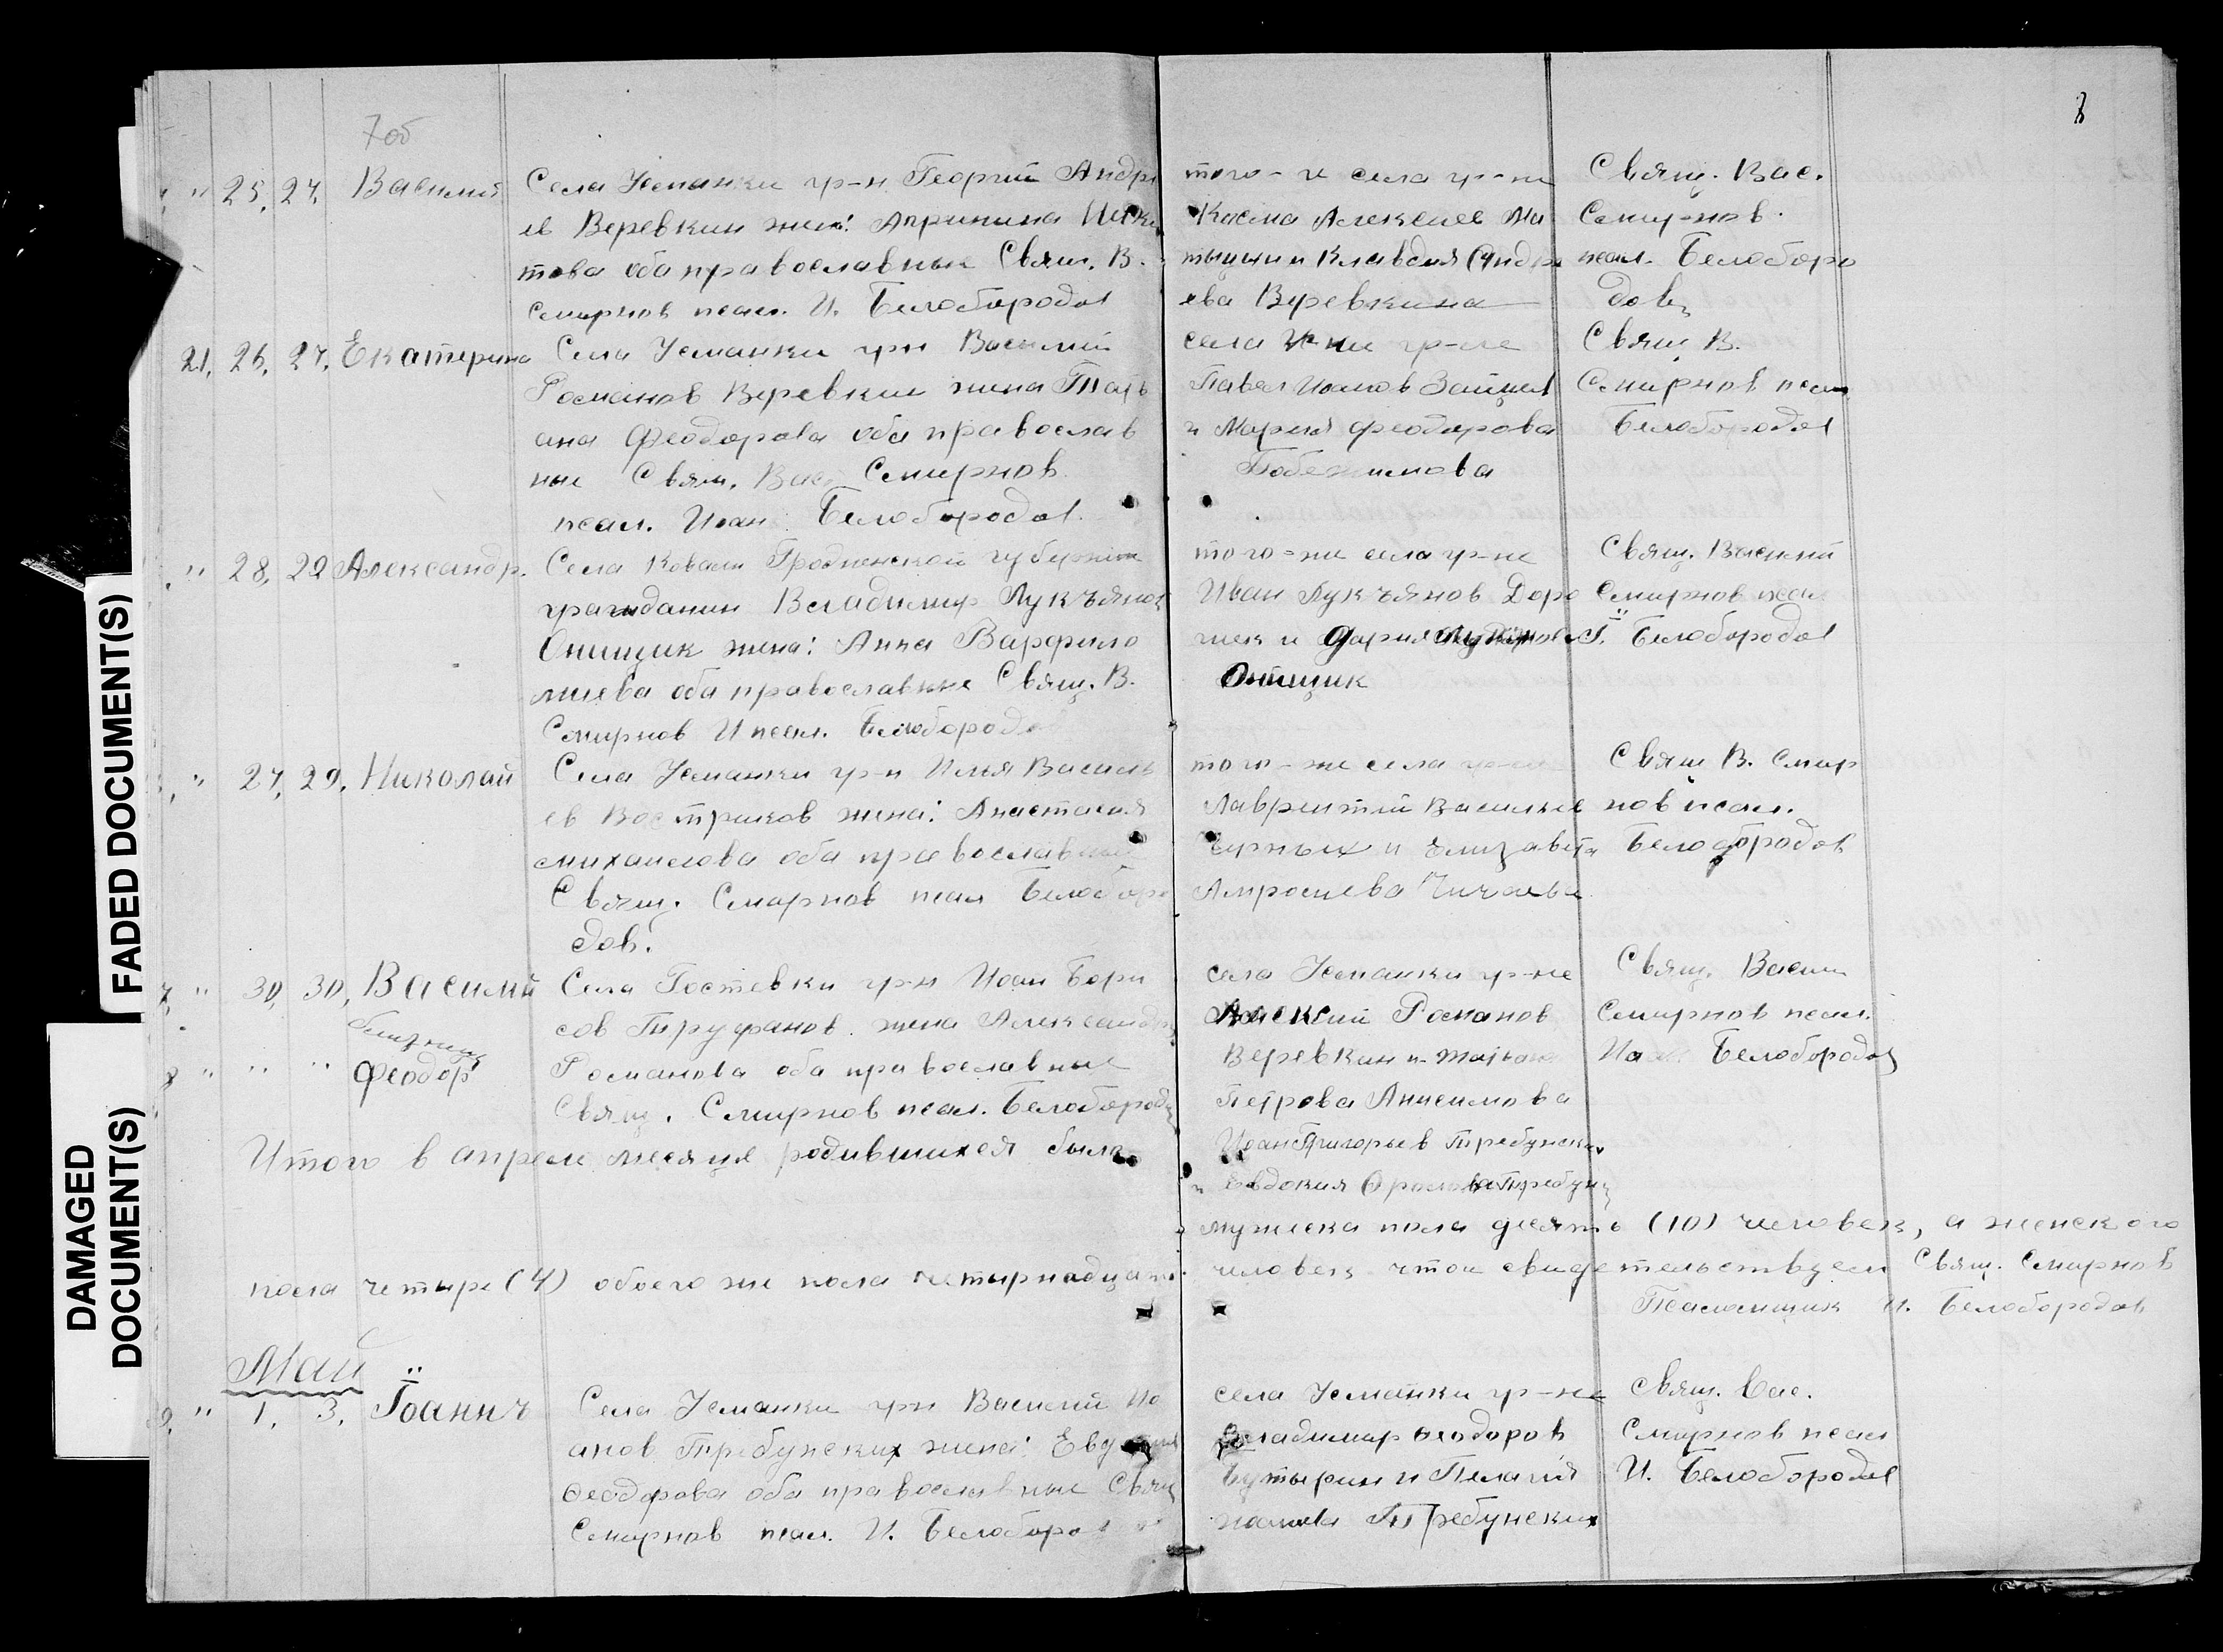 FADED DOCUMENT(S)
DAMAGED
DOCUMENT(S)
7об
8
" 25, 27, Василий
Села Усманки гр-н Георгий Андре
ев Веревкин жена: Агрипина Ники
това оба православные Свящ. В.
Смирнов псал. И. Белобородов
того-же села гр-не
Косма Алексеев Ма
тыцин и Клавдия Андре
ева Веревкина
Свящ. Вас.
Смирнов.
псал. Белоборо
дов
21, 26, 27, Екатерина
Села Усманки грн Василий
Романов Веревкин жена Тать
ана Феодорова оба православ
ные Свящ. Вас. Смирнов
псал. Иоан Белобородов.
села гр-не
Павел Иоанов Зайцев
и Мария Феодорова
Свящ В.
Смирнов псал
Белобородов
" 28, 29 Александр.
Села Ковали Гродненской губернии
гражданин Владимир Лукъянов
Онищик жена: Анна Варфоло
меева оба православные Свящ. В.
Смирнов И псал. Белобородов
того-же села гр-не
Иван Лукъянов Доро
и Дария
Онищик
Свящ. Василий
Смирнов псал
Ї. Белобородов
" 27, 29, Николай
Села Усманки гр-н Илья Василь
ев Востриков жена: Анастасия
михаилова оба православные
Свящ. Смирнов псал Белоборо
дов.
того-же села гр-не
Лаврентий Васильев
Черных и Елизавета
Амросиева
Свящ В. Смир
нов псал.
Белобородов
" 30, 30, Василий
близнецы
" " " Феодор
Села Гостевки гр-н Иоан Бори
сов Труфанов. жена Александра
Романова оба православные
Свящ. Смирнов псал. Белобородов
села Усманки гр-не
Алексий Романов
Веревкин и Татьяна
Петрова Анисимова
Иоан Григорьев Требунских
и Евдокия
Свящ. Васили
Смирнов псал.
Иоан Белобородов
Итого в апреле месяце родившихся было
мужска пола десять (10) человек, а женского
пола четыре (4) обоего же пола четырнадцать
человек что и свидетельствуем Свящ. Смирнов
Псаломщик И. Белобородов
Май
" 1, 3, Їоаннъ
Села Усманки грн Василий Ио
анов Требунских жена: Евдокия
Феодорова оба православные Свящ
Смирнов псал. И. Белобородов
села Усманки гр-не
Владимир Феодоров
Бутырин и Пелагия
Иоанова Требунских
Свящ. Вас.
Смирнов псал
И. Белобородов